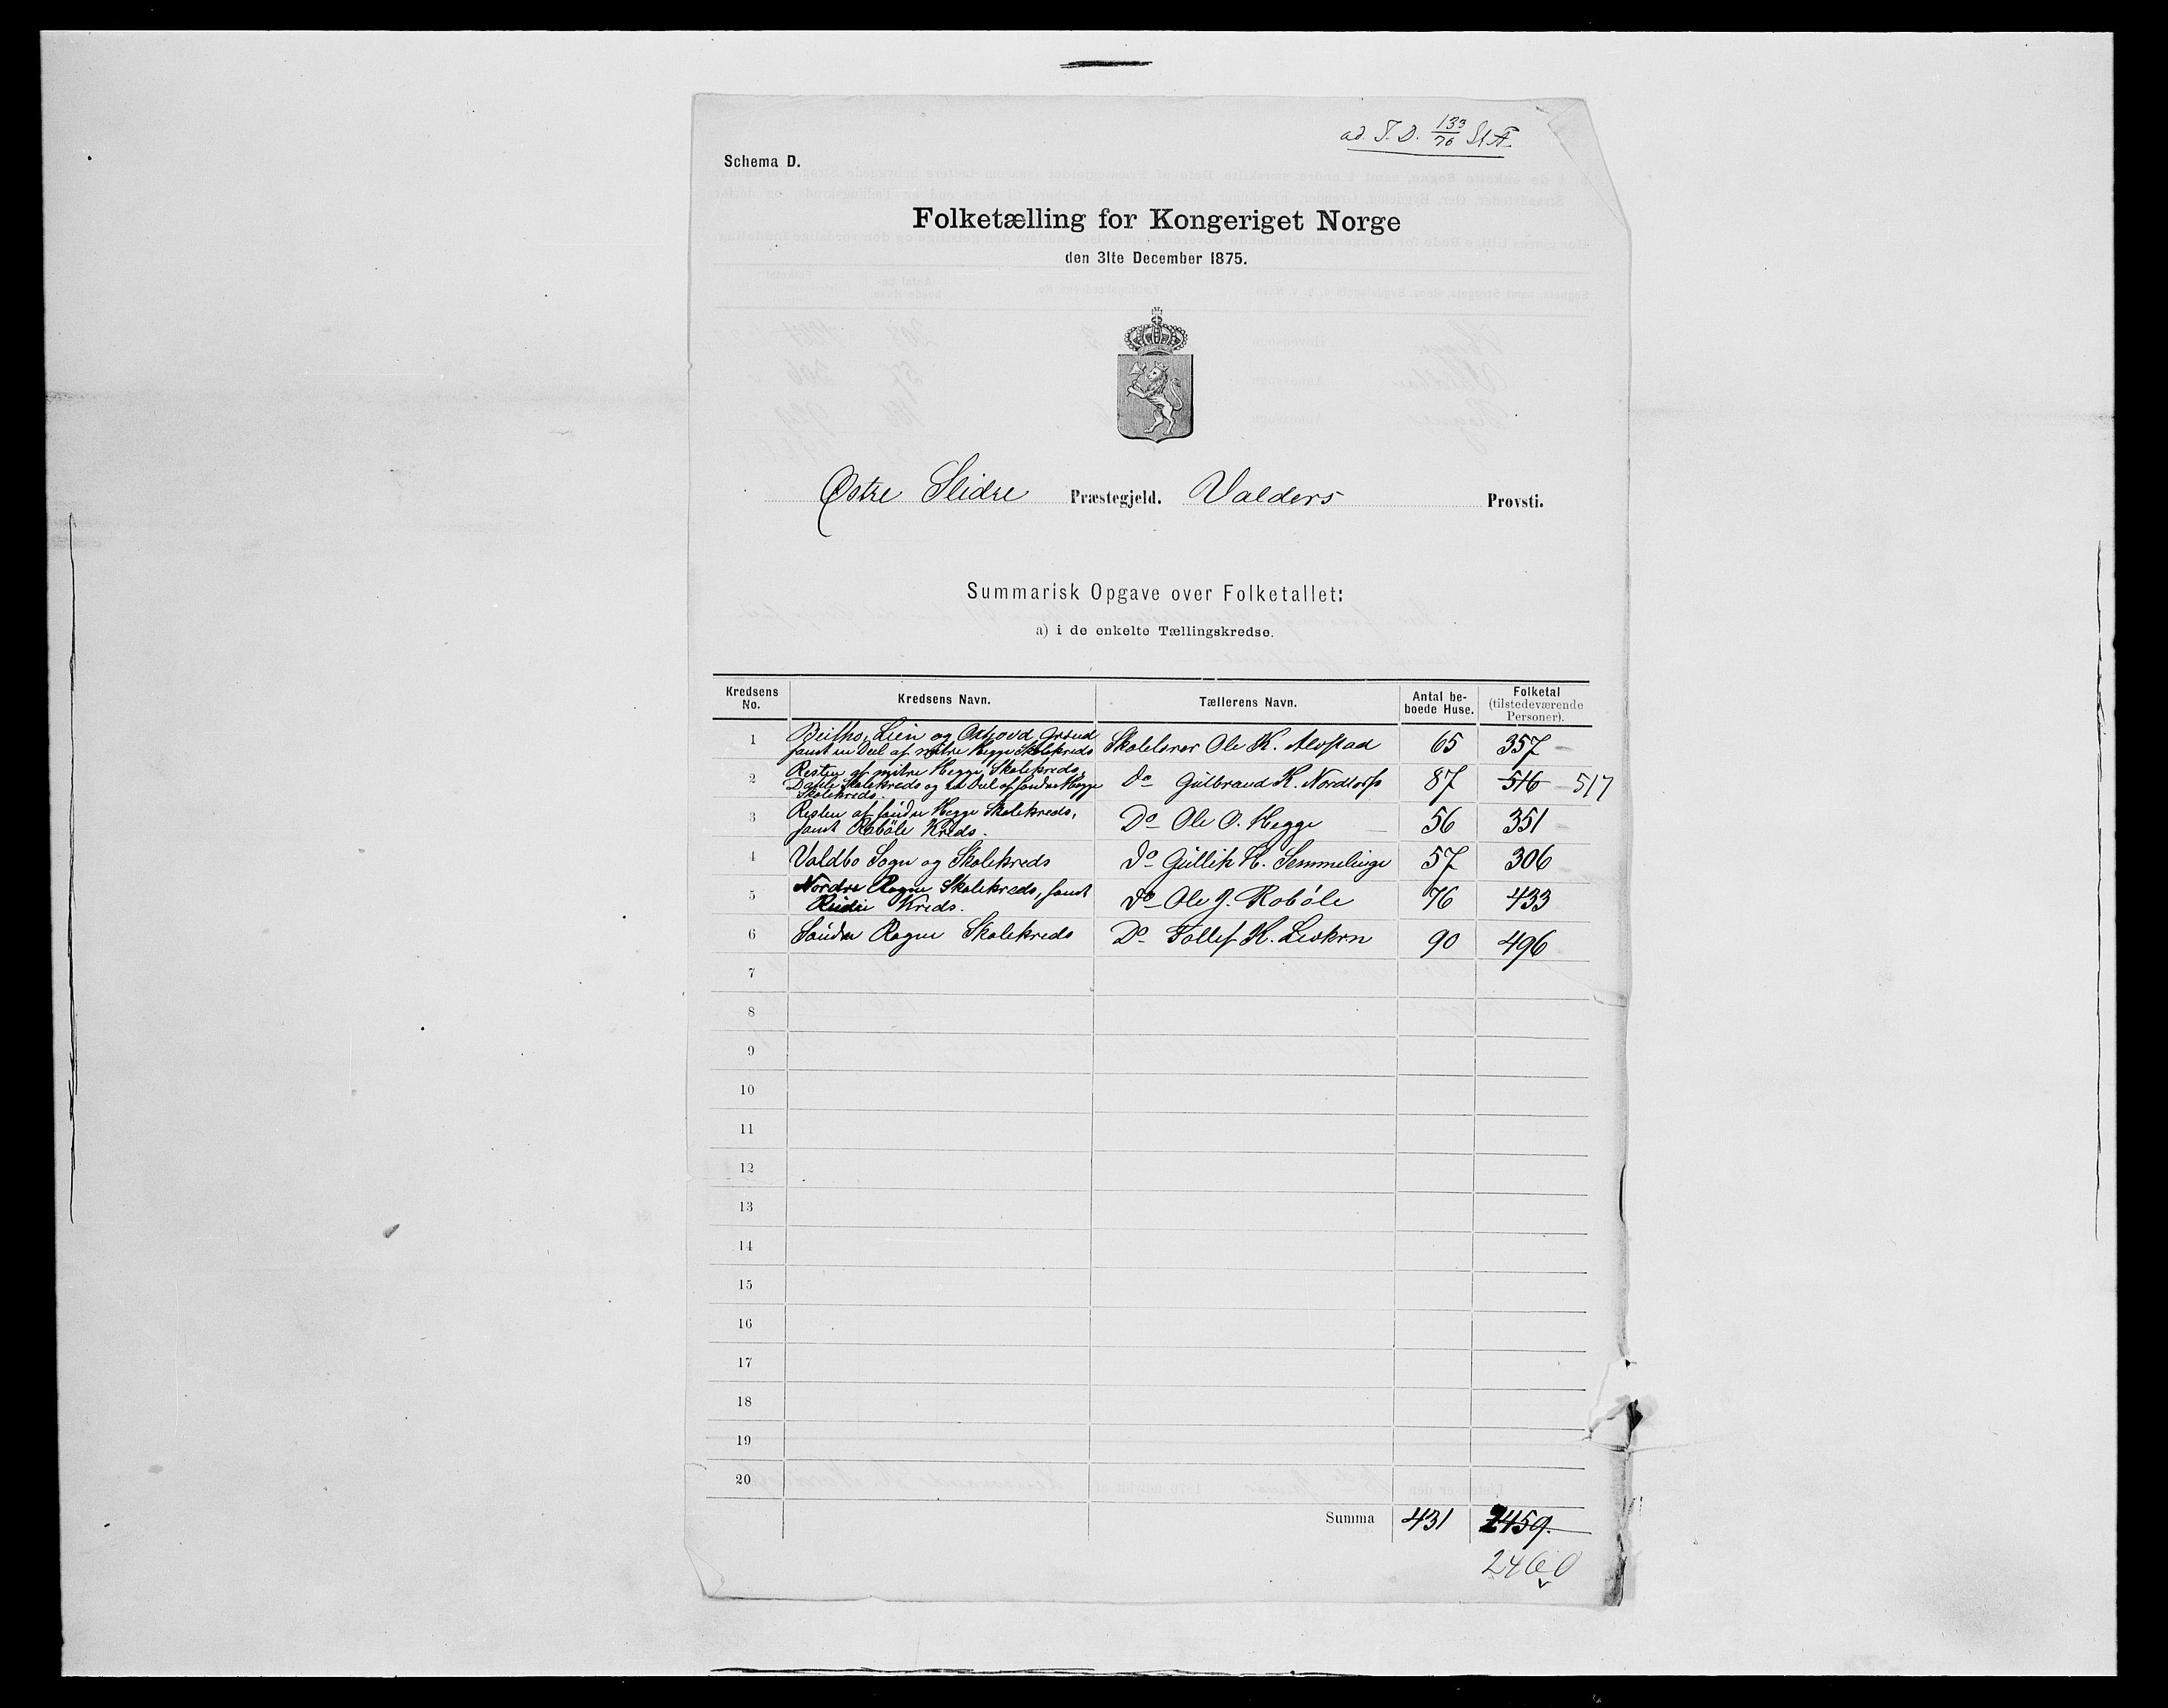 ad. T. D. 133/76 St A.
Schema D.
Folketælling for Kongeriget Norge
den 31te December 1875.
Østre Slidre Præstegjeld. Valders Provsti.
Summarisk Opgave over Folketallet:
a) i de enkelte Tællingskredse.
Kredsens No. Kredsens Navn. Tællerens Navn. Antal beboede Huse. Folketal (tilstedeværende Personer).
1 Beitho, Lien og Oxhovd Grænd
samt en Deel af mitre Hegge Skolekreds Skolelærer Ole K. Alvstad 65 357
2 Resten af mitre Hegge Skolekreds,
Dahle Skolekreds og en Deel af søndre Hegge
Skolekreds. do Gulbrand K. Nordtorp 87 516 517
3 Resten af søndre Hegge Skolekreds,
samt Robøle Kreds. Do Ole O. Hegge 56 351
4 Voldbo Sogn og Skolekreds do Gullik H. Semmelinge 57 306
5 Nordre Rogne Skolekreds, samt
Kreds. do Ole J. Robøle 76 433
6 Søndre Rogne Skolekreds Do Tollef K. 90 496
7
8
9
10
11
12
13
14
15
16
17
18
19
20
Summa 431 2459.
2460